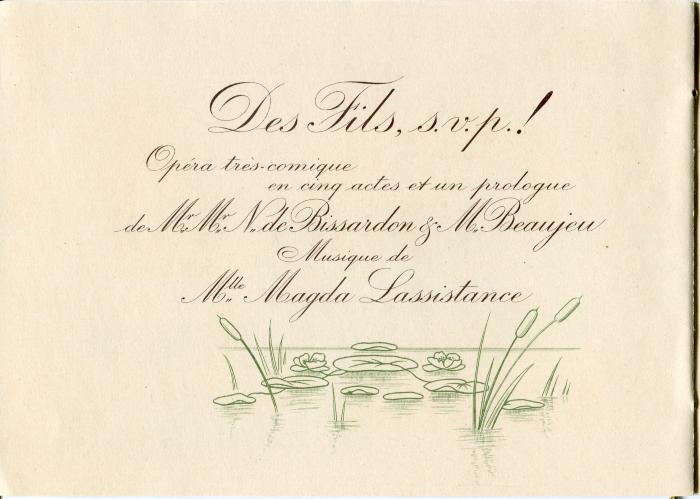 Des Fils, s.v.p.!
Opéra très-comique
en cinq actes et un prologue
de Mr. Mr. N. de Bissardon & M. Beaujeu
Musique de
Mlle Magda Lassistance